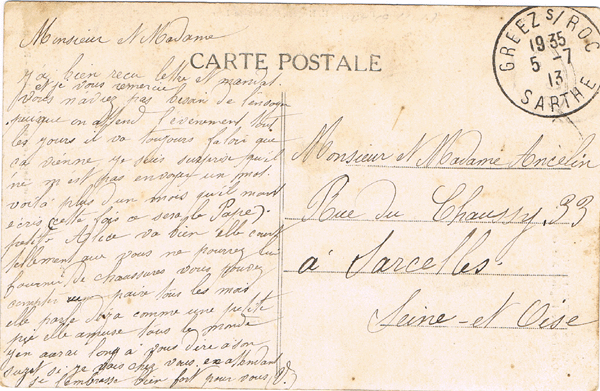 Monsieur et Madame
CARTE POSTALE
j'ai bien reçu lettre et mandat
et je vous remercie
vous n'aviez pas besoin de l'envoye
puisque on attend l'evenement tout
les jours il va toujours faloir que
sa vienne je suis surprise qu'il
ne m est pas envoyer un mot
voila plus d'un mois qu'il m'ont
ecris cette fois ce sera le Papa
petite Alice va bien elle cours
tellement que vous ne pourrez lui
fournir de chaussures vous pouvez
compter une paire tous les mois
elle parle comme une petite
pie elle amuse tous le monde
j'en aurai long à vous dire à son
sujet si je vais chez vous en attendant
je t'embrasse bien fort pour vous
GREEZ S/ ROC
19 35
5 -7
13
SARTHE
Monsieur et Madame Ancelin
Rue du Chaussy, 33
à Sarcelles
Seine-et-Oise